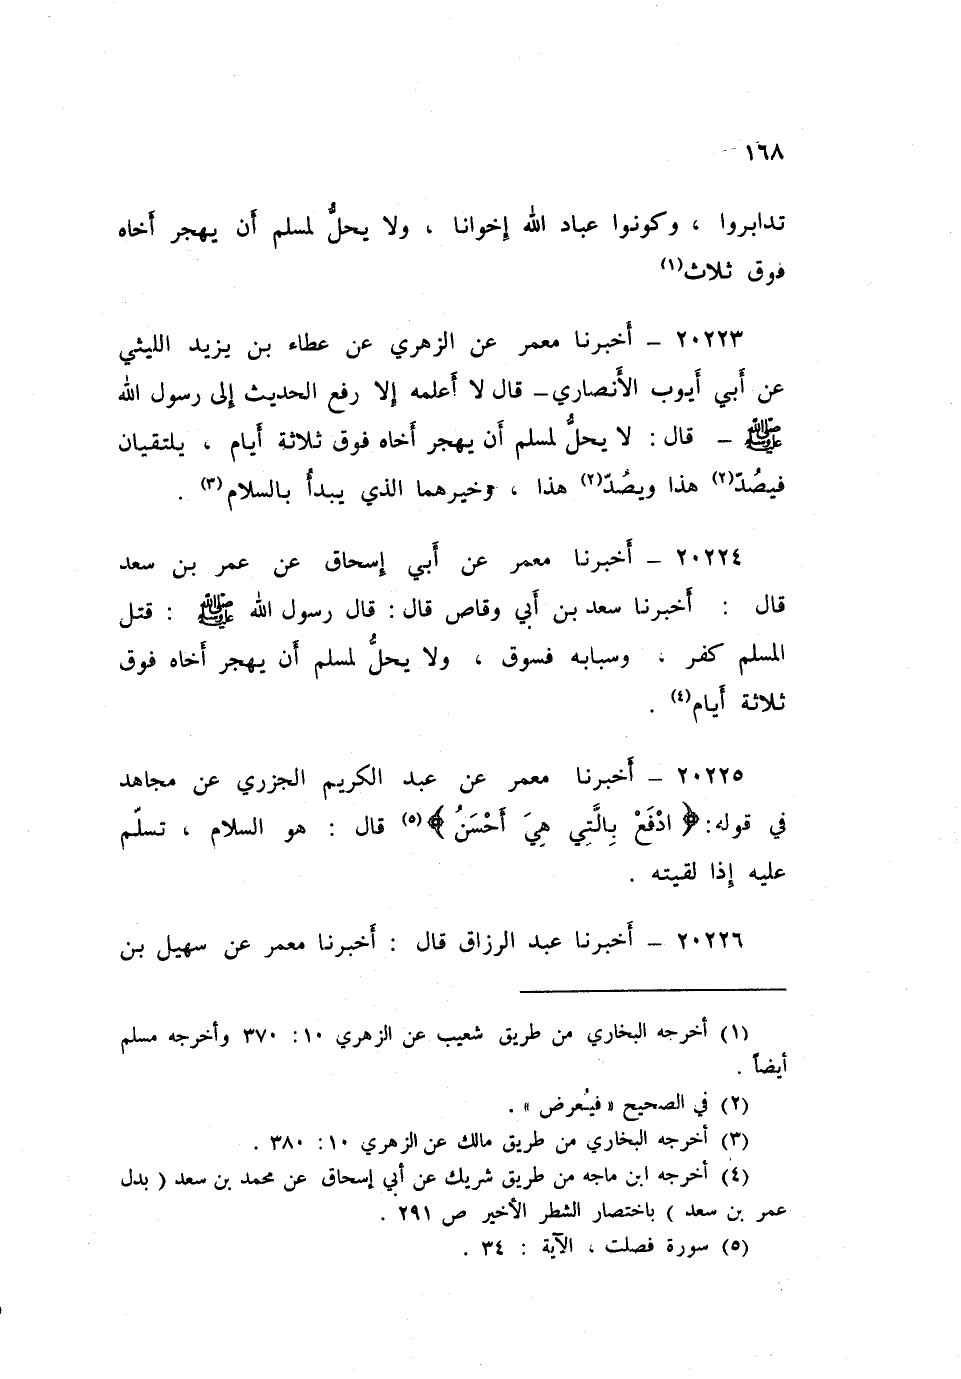 ١٦٨
تدابروا ، وكونوا عباد الله إخوانا ، ولا يحلُّ لمسلم أَن يهجر أَخاه
فوق ثلاث(١)
٢٠٢٢٣ – أَخبرنا معمر عن الزهري عن عطاء بن يزيد الليثي
عن أَبي أَيوب الأَنصاري – قال لا أَعلمه إلا رفع الحديث إلى رسول الله
ﷺ – قال : لا يحلُّ لمسلم أَن يهجر أَخاه فوق ثلاثة أَيام ، يلتقيان
فيصُدّ(٢) هذا ويصُدّ(٢) هذا ، وخيرهما الذي يبدأُ بالسلام(٣) .
٢٠٢٢٤ – أَخبرنا معمر عن أَبي إسحاق عن عمر بن سعد
قال : أَخبرنا سعد بن أَبي وقاص قال : قال رسول الله ﷺ : قتل
المسلم كفر ، وسبابه فسوق ، ولا يحلُّ لمسلم أَن يهجر أَخاه فوق
ثلاثة أَيام(٤) .
٢٠٢٢٥ – أَخبرنا معمر عن عبد الكريم الجزري عن مجاهد
في قوله : ﴿ ادْفَعْ بِالَّتِي هِيَ أَحْسَنُ ﴾(٥) قال : هو السلام ، تسلّم
عليه إذا لقيته .
٢٠٢٢٦ – أَخبرنا عبد الرزاق قال : أَخبرنا معمر عن سهيل بن
(١) أخرجه البخاري من طريق شعيب عن الزهري ١٠ : ٣٧٠ وأخرجه مسلم
أيضاً .
(٢) في الصحيح « فيُعرض » .
(٣) أخرجه البخاري من طريق مالك عن الزهري ١٠ : ٣٨٠ .
(٤) أخرجه ابن ماجه من طريق شريك عن أبي إسحاق عن محمد بن سعد ( بدل
عمر بن سعد ) باختصار الشطر الأخير ص ٢٩١ .
(٥) سورة فصلت ، الآية : ٣٤ .